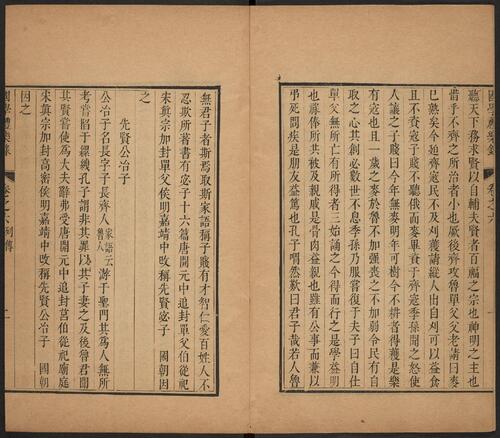 聽天下務求賢以自輔夫賢者百福之宗也神明之主也
惜乎不齊之所治者小也厥後齊攻魯單父父老請曰麥
已熟矣今迫齊寇民不及刈穫請縱人出自刈可以益食
且不資寇子賤不聽俄而麥畢資于齊寇季孫聞之怒使
人讓之子賤曰今年無麥明年可樹今不耕者得穫是樂
有寇也且一歲之麥於魯不加强喪之不加弱令民有自
取之心其創必數世不息季孫乃服嘗復于夫子曰自仕
單父無所亡有所得者三始誦之今得而行之是學益明
也祿俸所共被及親戚是骨肉益親也雖有公事而兼以
弔死問疾是朋友益篤也孔子喟然歎曰君子哉若人魯
卷之六
無君子者斯焉取斯家語稱子賤有才智仁愛百姓人不
忍欺所著書有宓子十六篇唐開元中追封單父伯從祀
宋眞宗加封單父侯明嘉靖中攺稱先賢宓子 國朝因
之
先賢公冶子
公冶子名長字子長齊人家語云魯人游于聖門其爲人無所
考嘗䧟于縲絏孔子謂非其罪以其子妻之及後魯君聞
其賢嘗使爲大夫辭弗受唐開元中追封莒伯從祀廟庭
宋眞宗加封高密侯明嘉靖中攺稱先賢公冶子 國朝
因之
卷之六列傳
二